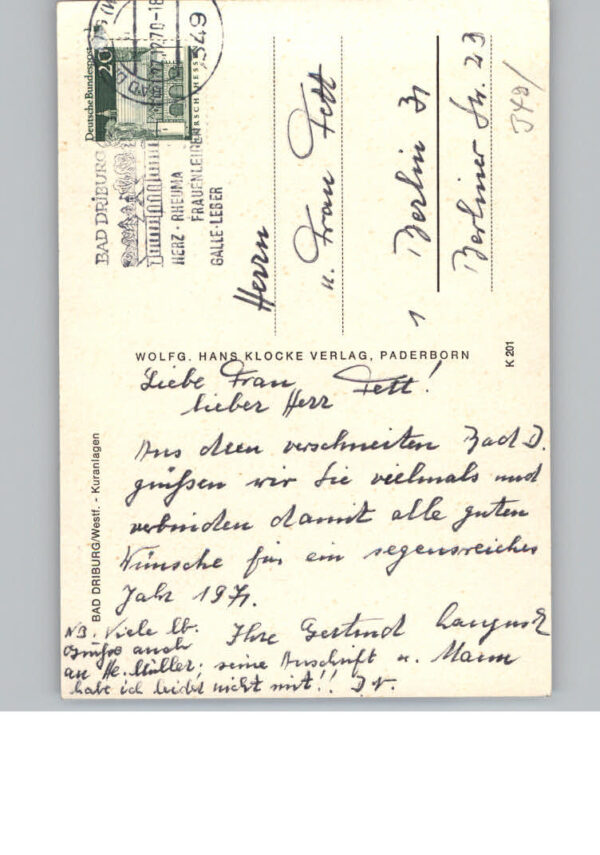 Deutsche Bundespost
20
349
BAD DRIBURG
HERZ · RHEUMA
FRAUENLEIDEN
GALLE-LEBER
Herrn
u. Frau Fett
1 Berlin 31
Berliner Str. 23
WOLFG. HANS KLOCKE VERLAG, PADERBORN
K 201
BAD DRIBURG/Westf. - Kuranlagen
Liebe Frau Fett!
lieber Herr
Aus dem verschneiten Bad D.
grüßen wir Sie vielmals und
verbinden damit alle guten
Wünsche für ein segensreiches
Jahr 1971.
Ihre Gertrud
u. Mann
NB. Viele lb.
Grüße auch
an He. Müller; seine Anschrift
habe ich leider nicht mit!!